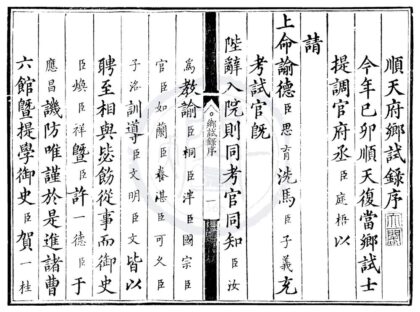 順天府鄉試錄序
今年己卯順天復當鄉試士
提調官府丞臣庭梧以
請
上命諭德臣思育洗馬臣子義充
考試官旣
陛辭入院則同考官同知臣汝
鄉試錄序
一
為教諭臣桐臣津臣國宗臣
官臣如蘭臣春湛臣可久臣
子洺訓導臣文明臣文皆以
聘至相與毖飭從事而御史
臣煥臣祥曁臣許一德臣于
應昌譏防唯謹於是進諸曹
六館曁提學御史臣賀一桂